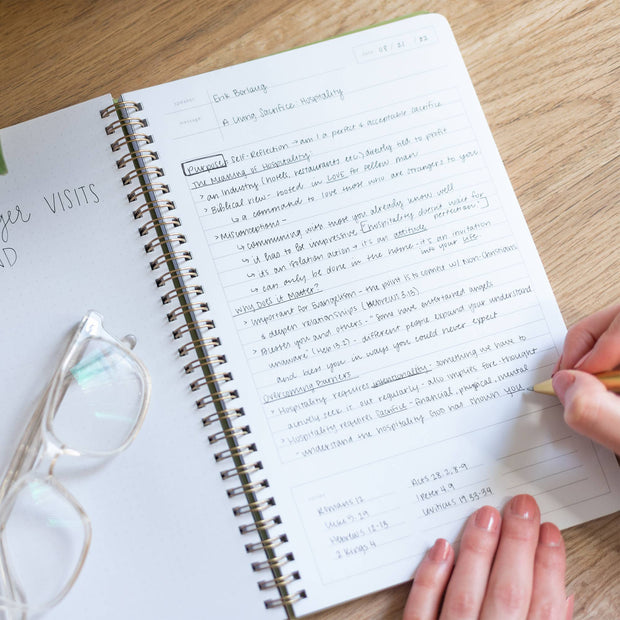 ger VISITS
ND
DATE 08 / 21 / 22
SPEAKER Erik Borlaug
MESSAGE A Living Sacrifice: Hospitality
Purpose: Self-Reflection → am I a perfect & acceptable sacrifice
The Meaning of Hospitality:
> an industry (hotels, restaurants etc.) directly tied to profit
> Biblical view - rooted in LOVE for fellow man
↳ a command to love those who are strangers to you
> Misconceptions -
↳ communing with those you already know well
↳ it has to be impressive [hospitality doesn't wait for perfection.]
↳ it's an isolation action → it's an attitude
↳ can only be done in the home - it's an invitation into your life.
Why Does it Matter?
> Important for Evangelism - the point is to connect w/ Non-Christians
& deepen relationships (Hebrews 3:13)
> Blesses you and others - "some have entertained angels
unaware" (Heb 13:2) - different people expand your understanding
and bless you in ways you could never expect
Overcoming Barriers
> Hospitality requires intentionality - something we have to
actively seek it out regularly - also implies fore-thought
> Hospitality requires Sacrifice - financial, physical, mental
- understand the hospitality God has shown you
Romans 12
Luke 5:29
Hebrews 12-13
2 Kings 4
Acts 28:2, 8-9
1 Peter 4:9
Leviticus 19:33-34